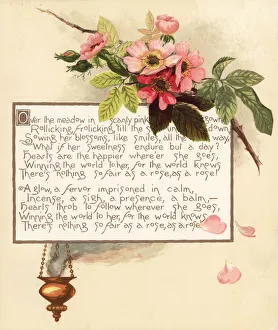 Over the meadow in scanly pink gown,
Rollicking, frolicking, till the sun
Sowing her blossoms, like smiles, all the way,
What if her sweetness endure but a day?
Hearts are the happier where'er she goes,
Winning the world to her, for the world knows
There's nothing so fair as a rose, as a rose!
A glow, a fervor imprisoned in calm,
Incense, a sigh, a presence, a balm,—
Hearts throb to follow wherever she goes,
Winning the world to her, for the world knows
There's nothing so fair as a rose, as a rose!